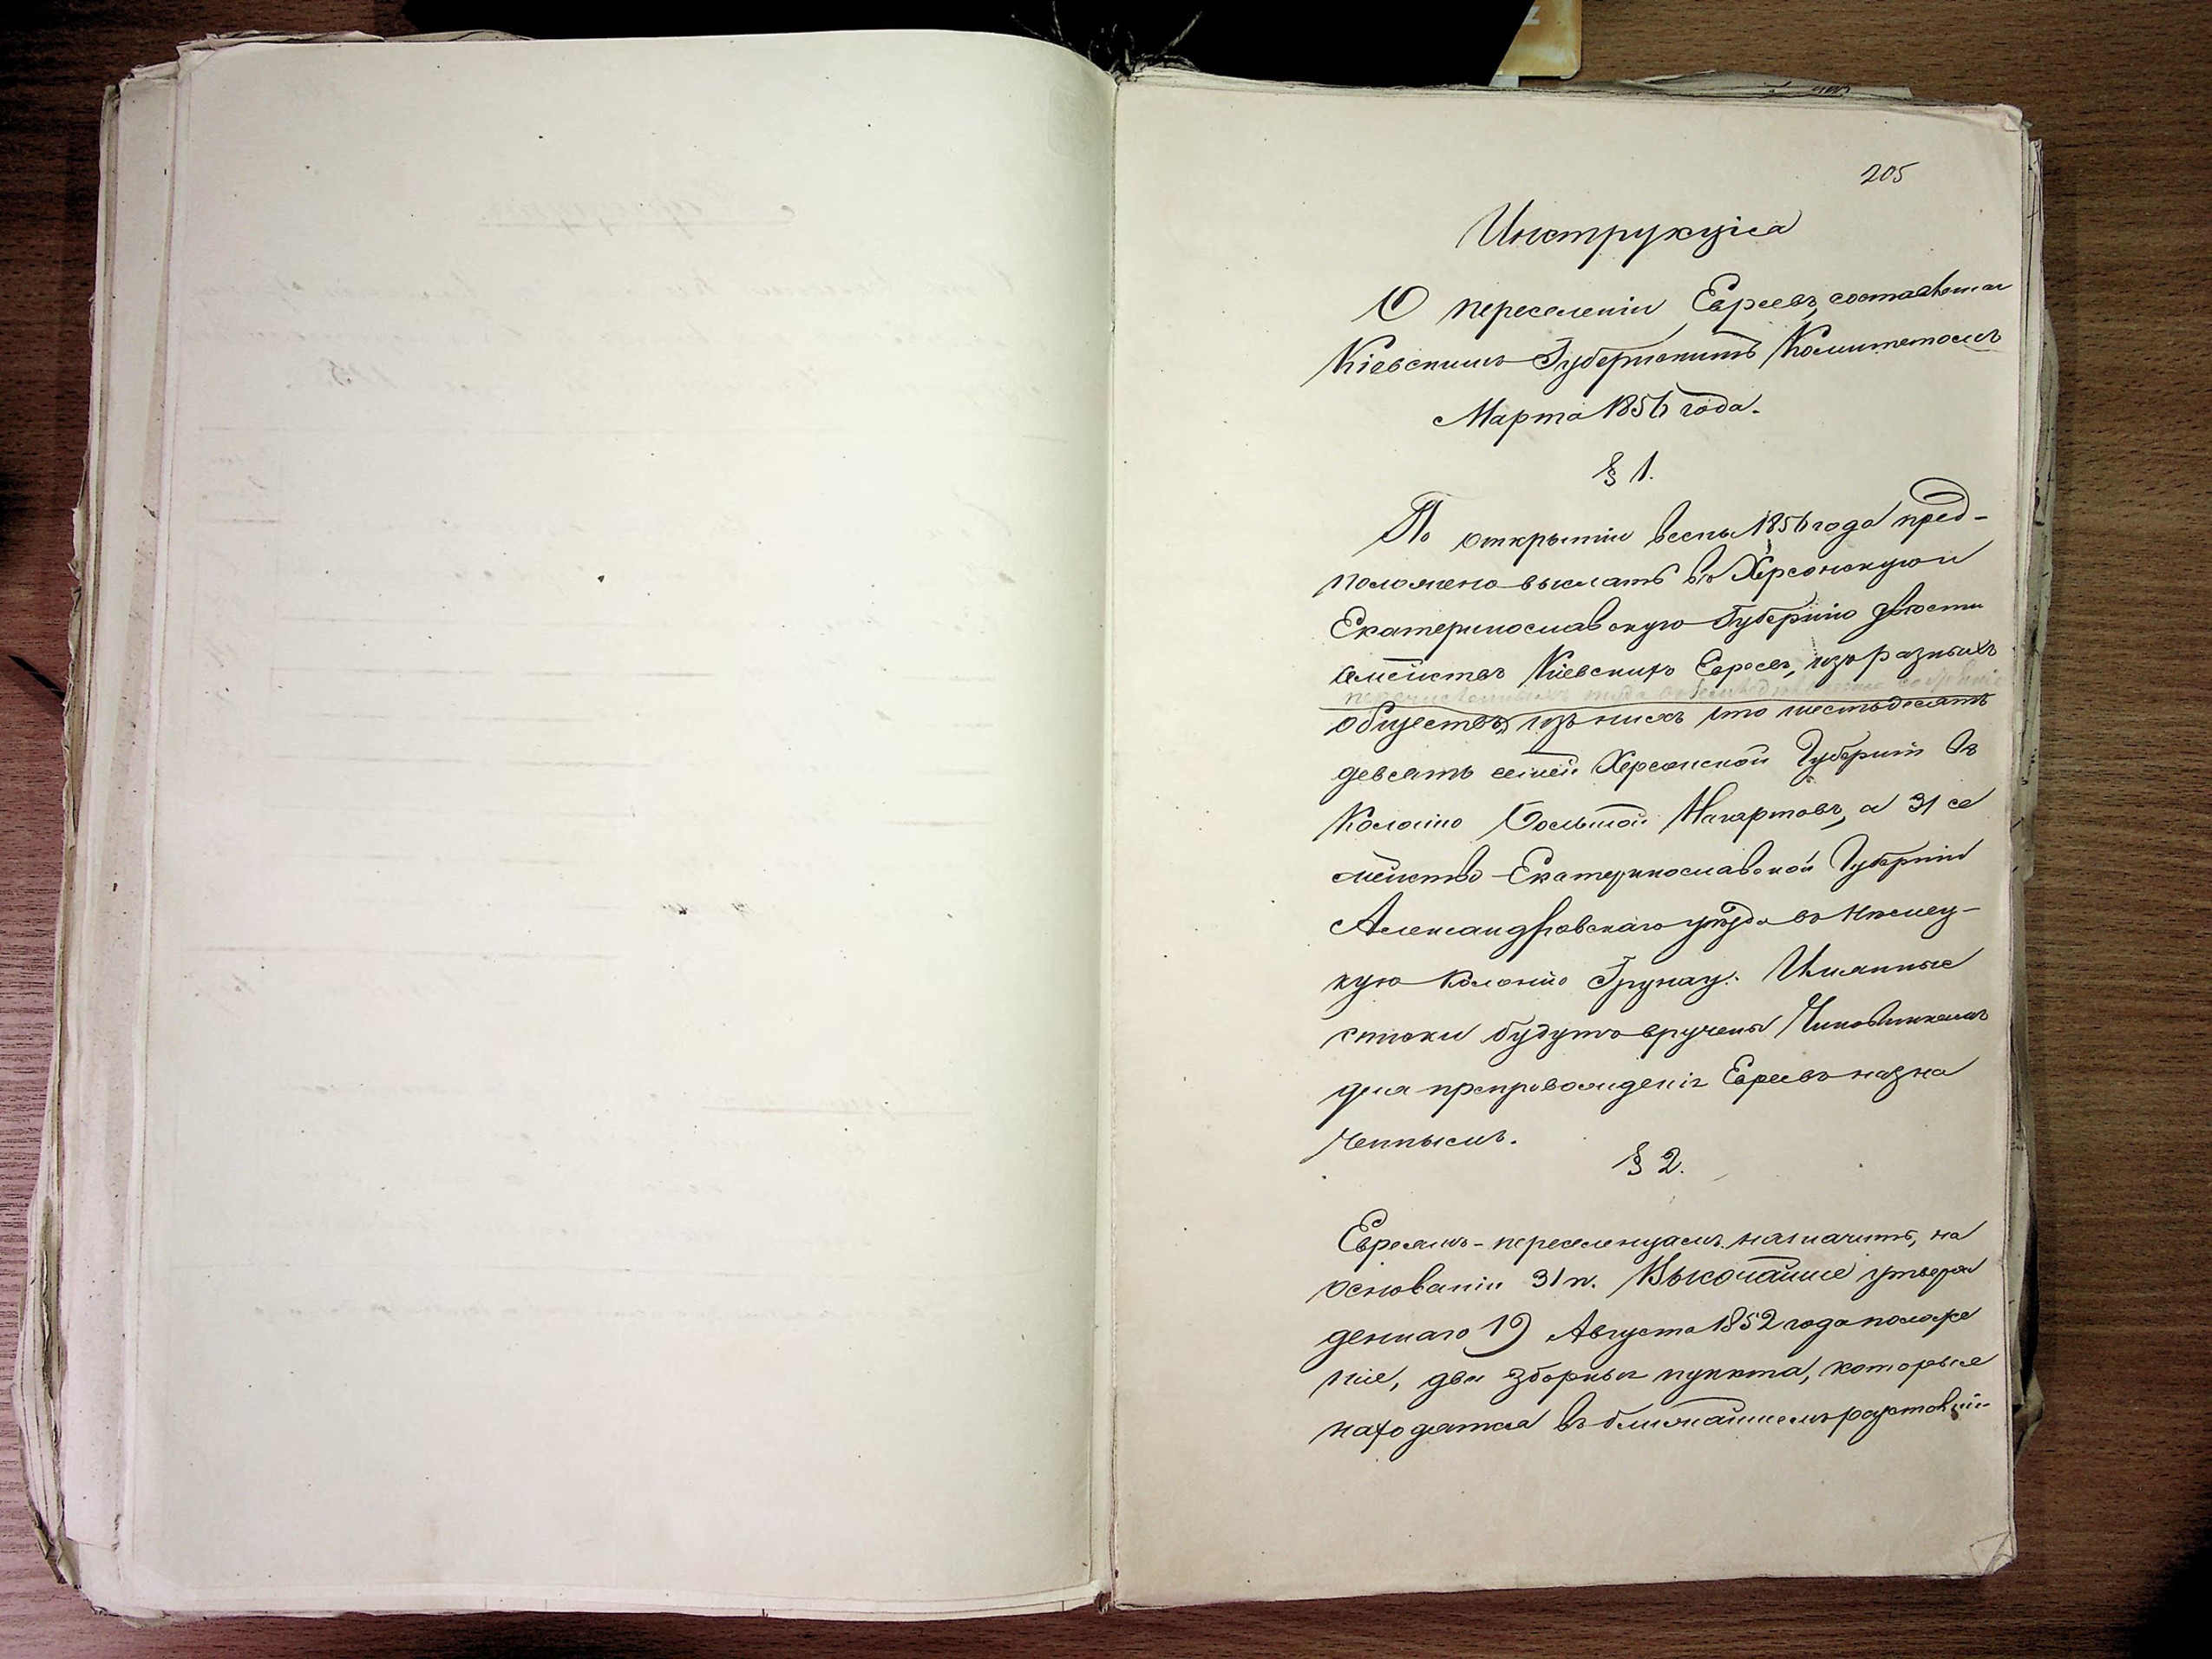 205
Инструкція
О переселеніи Евреевъ, составленная
Кіевскимъ Губернскимъ Комитетомъ
Марта 1856 года.
§ 1.
По открытіи весны 1856 года пред-
положено выслать въ Херсонскую и
Екатеринославскую Губернію двѣсти
семействъ Кіевскихъ Евреевъ, изъ разныхъ
перечисленныхъ туда
обществъ, изъ нихъ сто шестьдесятъ
девсять семей Херсонской Губерніи въ
Колонію Большой Нагартовъ, а 31 се
мейство Екатеринославской Губерніи
Александровскаго уѣзда въ Нѣмец-
кую Колонію Грунау. Имянные
списки будутъ вручены Чиновникамъ
для препровожденія Евреевъ назна
ченнымъ.
§ 2.
Евреямъ-переселенцамъ назначить, на
основаніи 31 п. Высочайше утверж
деннаго 19 Августа 1852 года положе
нія, два зборныхъ пункта, которые
находятся въ ближайшемъ разстояніи